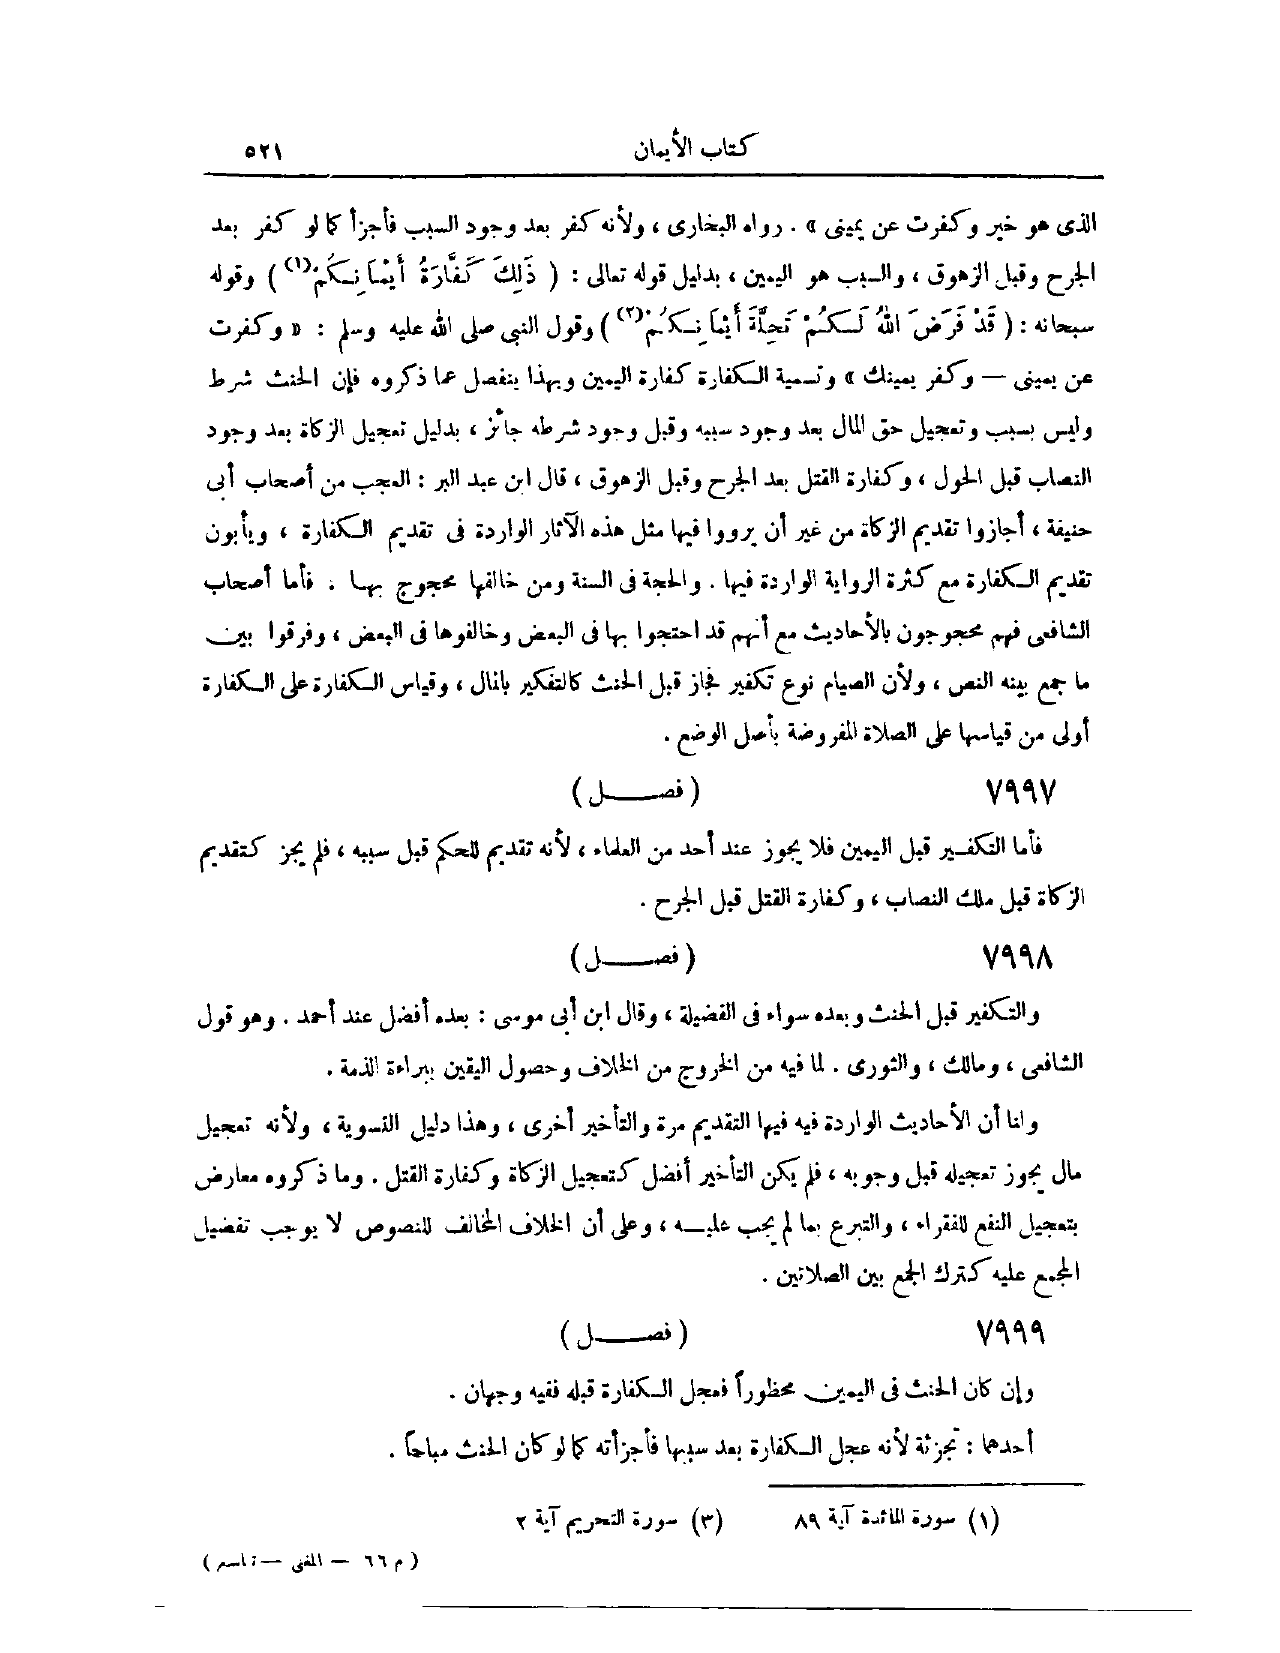 كتاب الأيمان ٥٢١
الذى هو خير وكفرت عن يمينى » . رواه البخارى ، ولأنه كفر بعد وجود السبب فأجزأ كما لو كفر بعد
الجرح وقبل الزهوق ، والسبب هو اليمين ، بدليل قوله تعالى : ( ذَلِكَ كَفَّارَةُ أَيْمَانِكُمْ (١) ) وقوله
سبحانه : ( قَدْ فَرَضَ اللهُ لَكُمْ تَحِلَّةَ أَيْمَانِكُمْ (٢) ) وقول النبى صلى الله عليه وسلم : « وكفرت
عن يمينى — وكفر يمينك » وتسمية الكفارة كفارة اليمين وبهذا ينفصل عما ذكروه فإن الحنث شرط
وليس بسبب وتعجيل حق المال بعد وجود سببه وقبل وجود شرطه جائز ، بدليل تعجيل الزكاة بعد وجود
النصاب قبل الحول ، وكفارة القتل بعد الجرح وقبل الزهوق ، قال ابن عبد البر : العجب من أصحاب أبى
حنيفة ، أجازوا تقديم الزكاة من غير أن يرووا فيها مثل هذه الآثار الواردة فى تقديم الكفارة ، ويأبون
تقديم الكفارة مع كثرة الرواية الواردة فيها . والحجة فى السنة ومن خالفها محجوج بها . فأما أصحاب
الشافعى فهم محجوجون بالأحاديث مع أنهم قد احتجوا بها فى البعض وخالفوها فى البعض ، وفرقوا بين
ما جمع بينه النص ، ولأن الصيام نوع تكفير فجاز قبل الحنث كالتفكير بالمال ، وقياس الكفارة على الكفارة
أولى من قياسها على الصلاة المفروضة بأصل الوضع .
٧٩٩٧ ( فصـــــل )
فأما التكفير قبل اليمين فلا يجوز عند أحد من العلماء ، لأنه تقديم للحكم قبل سببه ، فلم يجز كتقديم
الزكاة قبل ملك النصاب ، وكفارة القتل قبل الجرح .
٧٩٩٨ ( فصـــــل )
والتكفير قبل الحنث وبعده سواء فى الفضيلة ، وقال ابن أبى موسى : بعده أفضل عند أحمد . وهو قول
الشافعى ، ومالك ، والثورى . لما فيه من الخروج من الخلاف وحصول اليقين ببراءة الذمة .
ولنا أن الأحاديث الواردة فيه فيها التقديم مرة والتأخير أخرى ، وهذا دليل التسوية ، ولأنه تعجيل
مال يجوز تعجيله قبل وجوبه ، فلم يكن التأخير أفضل كتعجيل الزكاة وكفارة القتل . وما ذكروه معارض
بتعجيل النفع للفقراء ، والتبرع بما لم يجب عليه ، وعلى أن الخلاف المخالف للنصوص لا يوجب تفضيل
المجمع عليه كترك الجمع بين الصلاتين .
٧٩٩٩ ( فصـــــل )
وإن كان الحنث فى اليمين محظوراً فعجل الكفارة قبله ففيه وجهان .
أحدهما : تجزئة لأنه عجل الكفارة بعد سببها فأجزأته كما لو كان الحنث مباحاً .
(١) سورة المائدة آية ٨٩ (٣) سورة التحريم آية ٢
( م ٦٦ — المغنى — تاسع )